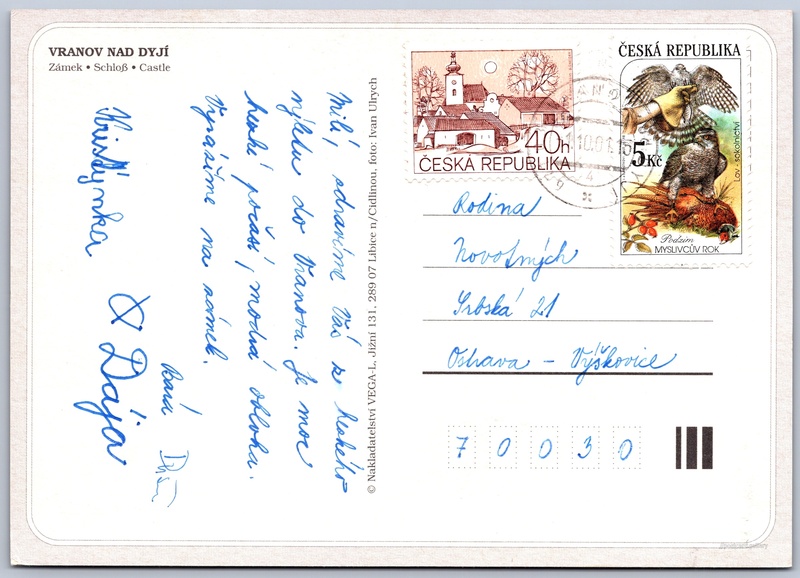 VRANOV NAD DYJÍ
Zámek • Schloß • Castle
Milí, zdravíme Vás z hezkého
výletu do Vranova. Je moc
hezké počasí, modrá obloha.
Vyrazíme na zámek.
Kristýnka
Dája
© Nakladatelství VEGA-L, Jižní 131, 289 07 Libice n/Cidlinou, foto: Ivan Ulrych
40h
ČESKÁ REPUBLIKA
ČESKÁ REPUBLIKA
5 Kč
Lov - sokolnictví
Podzim
MYSLIVCŮV ROK
Rodina
Novotných
Srbská 21
Ostrava - Výškovice
70030